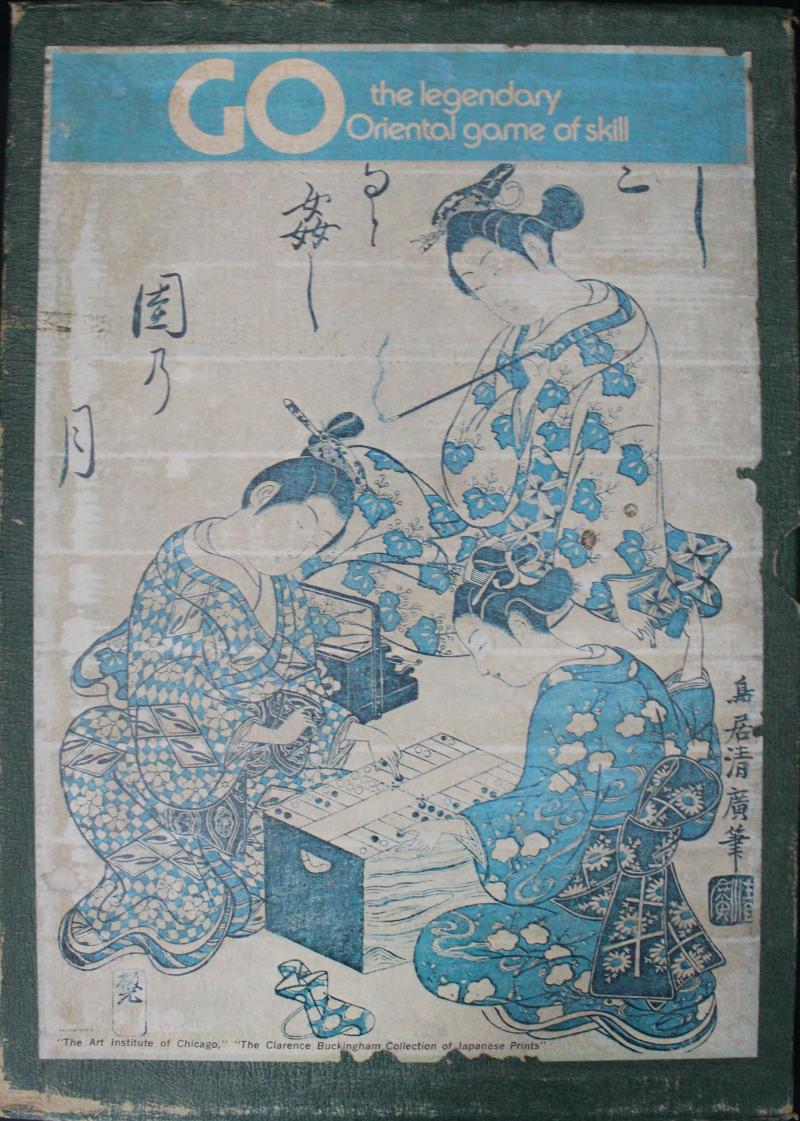 GO
the legendary
Oriental game of skill
姦し
園乃
月
鳥居清廣筆
"The Art Institute of Chicago," "The Clarence Buckingham Collection of Japanese Prints"